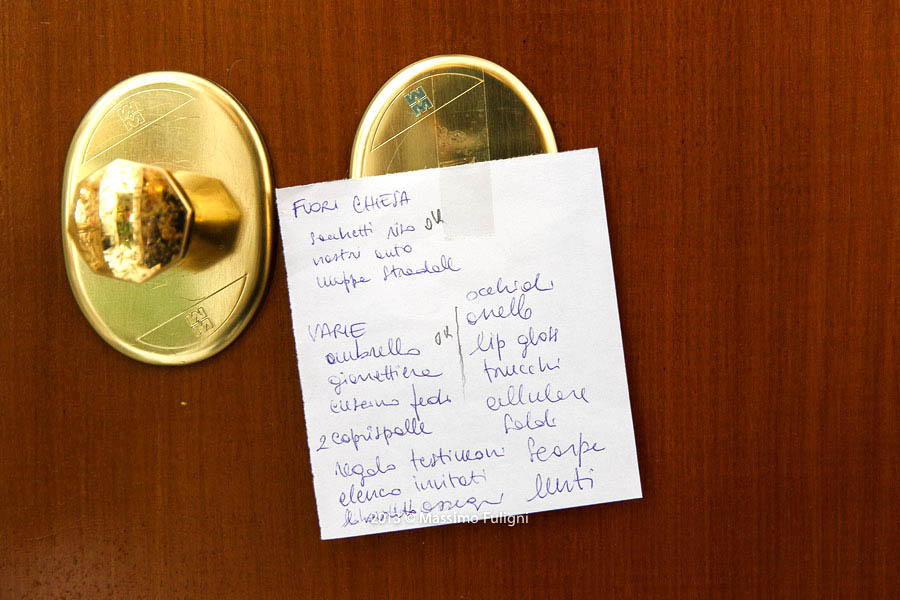 FUORI CHIESA
sacchetti riso OK
nastri auto
mappe stradali
VARIE
ombrello OK
giarrettiera
cuscino fedi
2 coprispalle
regalo testimoni
elenco invitati
libretto assegni
occhiali
anello
lip gloss
trucchi
cellulare
soldi
scarpe
lenti
2013 © Massimo Fuligni